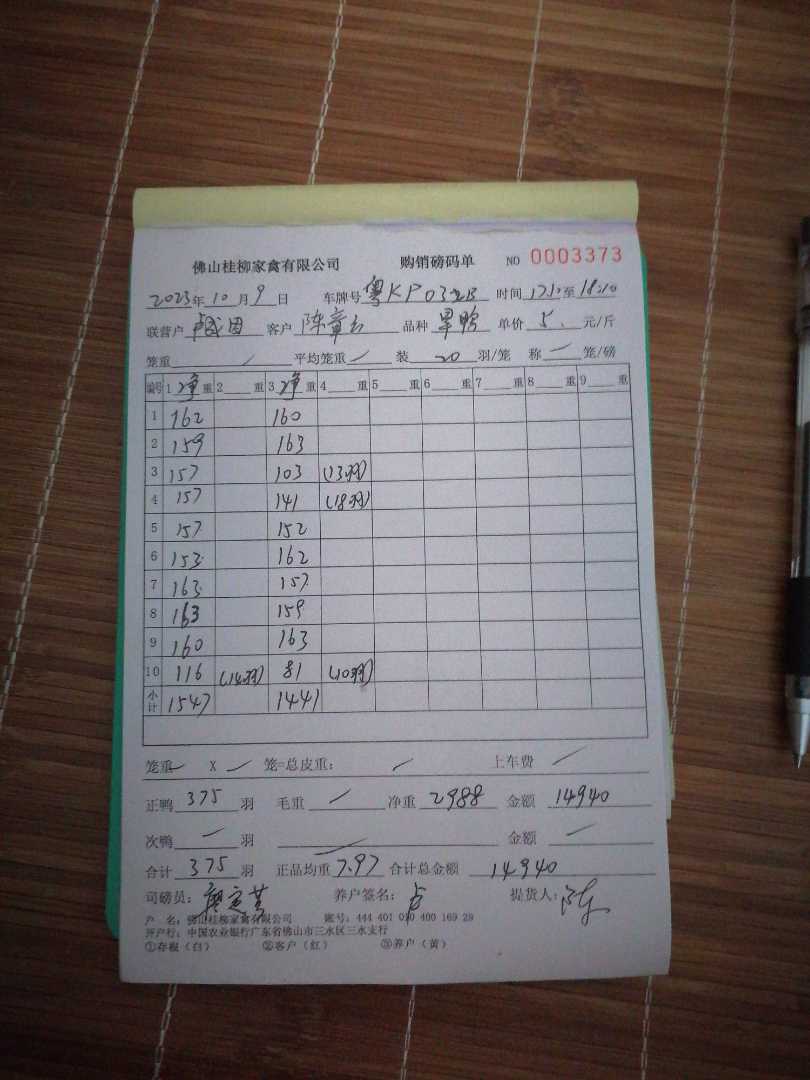 佛山桂柳家禽有限公司 购销磅码单 NO 0003373
2023年10月9日 车牌号 粤KP032B 时间 17:10至18:10
联营户 客户 陈章云 品种 旱鸭 单价 5. 元/斤
笼重 / 平均笼重 / 装 20 羽/笼 称 / 笼/磅
编号 1 净 重 2 重 3 净 重 4 重 5 重 6 重 7 重 8 重 9 重
1 162 160
2 159 163
3 157 103 (13羽)
4 157 141 (18羽)
5 157 152
6 153 162
7 163 157
8 163 159
9 160 163
10 116 (14羽) 81 (10羽)
小计 1547 1441
笼重 / X / 笼=总皮重: / 上车费 /
正鸭 375 羽 毛重 / 净重 2988 金额 14940
次鸭 / 羽 / 金额 /
合计 375 羽 正品均重 7.97 合计总金额 14940
司磅员: 养户签名: 卢 提货人: 陈
户 名: 佛山桂柳家禽有限公司 账号: 444 401 010 400 169 29
开户行: 中国农业银行广东省佛山市三水区三水支行
①存根(白) ②客户(红) ③养户(黄)